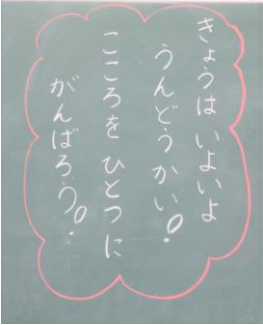 きょうは いよいよ
うんどうかい!
こころを ひとつに
がんばろう!